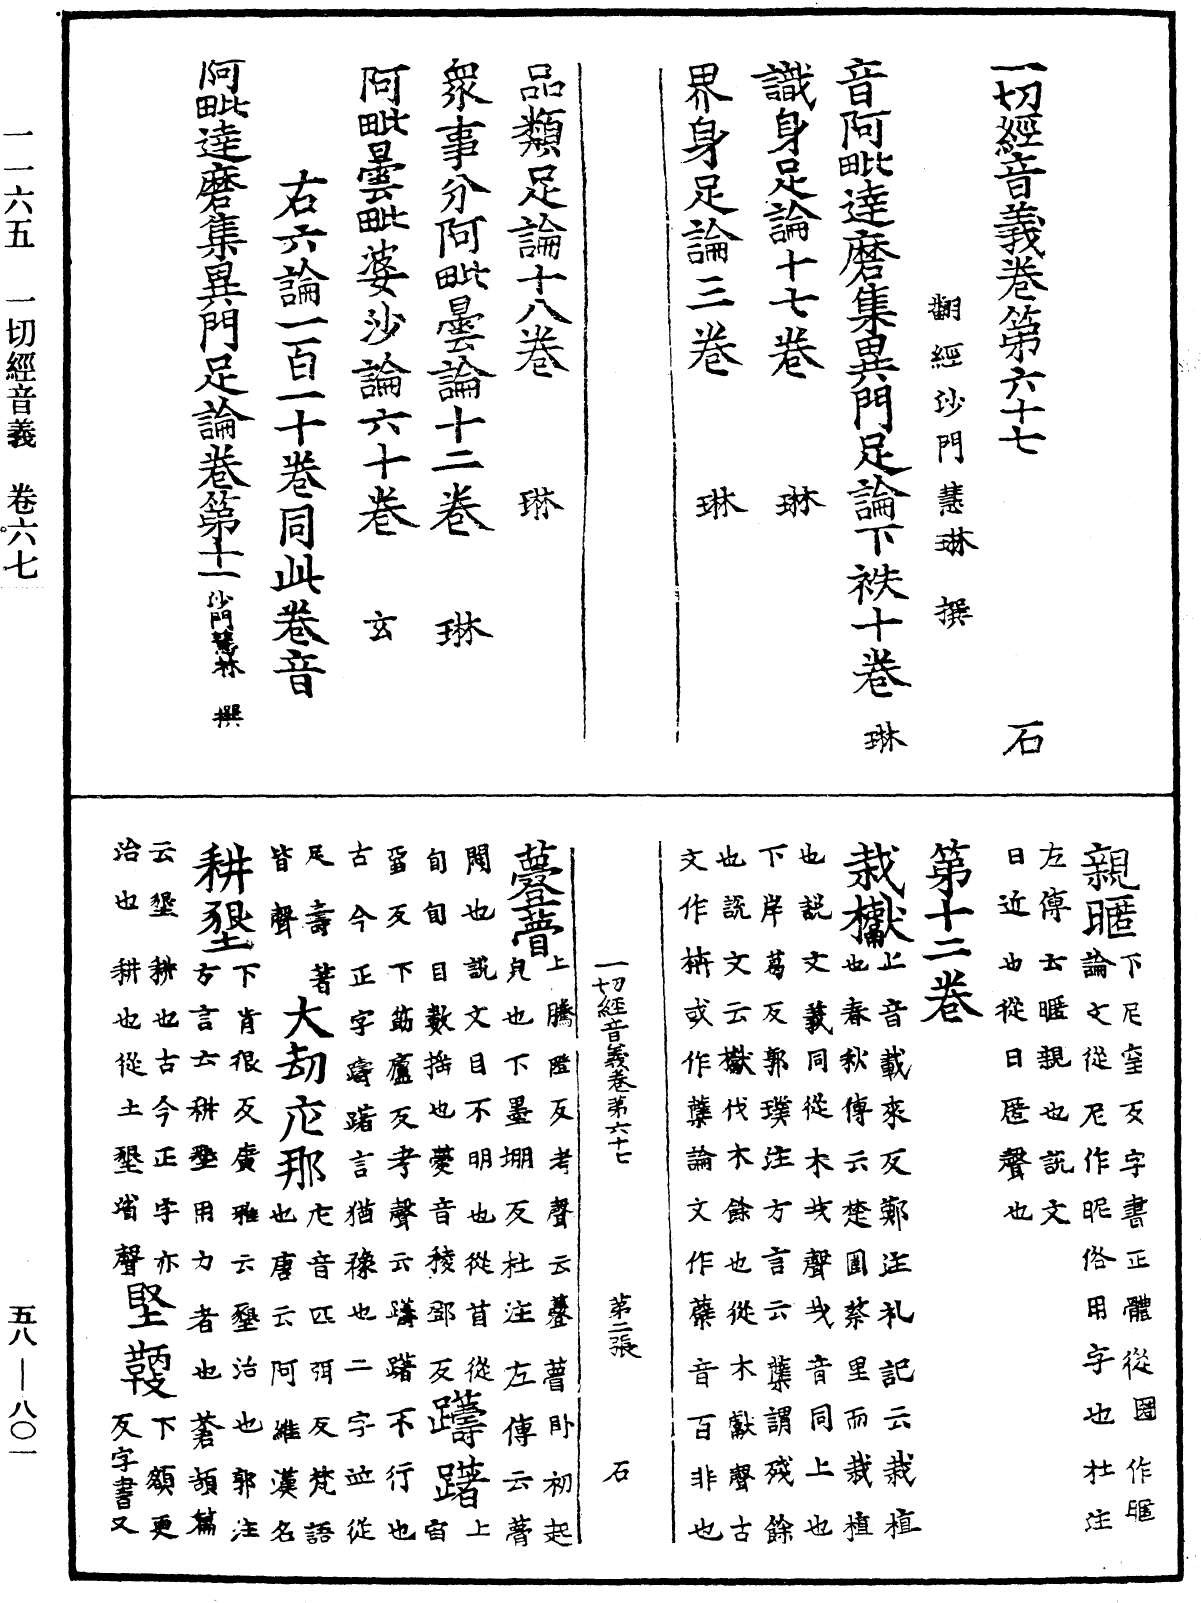 一一六五　一切經音義　卷六七
五八—八〇一
一切經音義卷第六十七　石
翻經沙門慧琳撰
音阿毗達磨集異門足論下袟十卷　琳
識身足論十七卷　琳
界身足論三卷　琳
品類足論十八卷　琳
衆事分阿毗曇論十二卷　琳
阿毗曇毗婆沙論六十卷　玄
右六論一百一十卷同此卷音
阿毗達磨集異門足論卷第十一　沙門慧琳　撰
親暱　下尼窒反字書正體從作暱
論文從尼作昵俗用字也杜注
左傳云暱親也説文
日近也從日匿聲也
第十二卷
栽櫱　上音載來反鄭注礼記云栽植
也春秋傳云楚圍蔡里而栽植
也説文義同從木𢦏聲𢦏音同上也
下岸葛反郭璞注方言云蘖謂殘餘
也説文云櫱伐木餘也從木獻聲古
文作枿或作蘖論文作蘗音百非也
一切經音義卷第六十七　第二張　石
䠬瞢　上騰隥反考聲云䠬瞢卧初起
皃也下墨堋反杜注左傳云瞢
悶也説文目不明也從苜從上
旬旬目數搖也音稜鄧反　躊躇　宙
留反下筯廬反考聲云躊躇不行也
古今正字躊躇言猶豫也二字並從
足壽著
皆聲　大劫庀那　庀音匹弭反梵語
也唐云阿維漢名
耕墾　下肯很反廣雅云墾治也郭注
方言云耕墾用力者也蒼頡篇
云墾耕也古今正字亦
治也耕也從土豤聲　堅鞕　下額更
反字書又